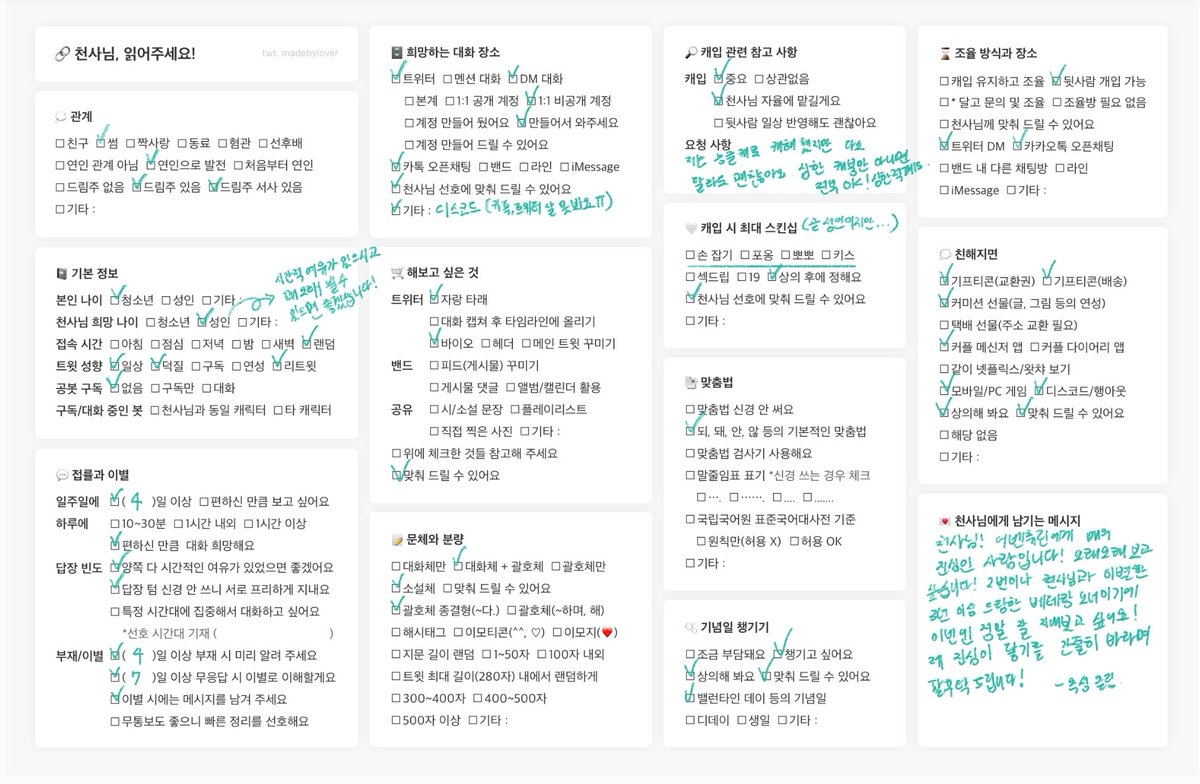 🔗 천사님, 읽어주세요!
twt. madebylover
💭 관계
☐친구 ☑썸 ☐짝사랑 ☐동료 ☐혐관 ☐선후배
☐연인 관계 아님 ☑연인으로 발전 ☐처음부터 연인
☐드림주 없음 ☑드림주 있음 ☑드림주 서사 있음
☐기타 :
📓 기본 정보
본인 나이 ☑청소년 ☐성인 ☐기타
시간적 여유가 있으시고
있으면 좋겠습니다!
천사님 희망 나이 ☐청소년 ☑성인 ☐기타 :
접속 시간 ☐아침 ☐점심 ☐저녁 ☐밤 ☐새벽 ☑랜덤
트윗 성향 ☑일상 ☑덕질 ☐구독 ☐연성 ☑리트윗
공봇 구독 ☑없음 ☐구독만 ☐대화
구독/대화 중인 봇 ☐천사님과 동일 캐릭터 ☐타 캐릭터
💬 접률과 이별
일주일에 ☑( 4 )일 이상 ☐편하신 만큼 보고 싶어요
하루에 ☐10~30분 ☐1시간 내외 ☐1시간 이상
☑편하신 만큼 대화 희망해요
답장 빈도 ☑양쪽 다 시간적인 여유가 있었으면 좋겠어요
☑답장 텀 신경 안 쓰니 서로 프리하게 지내요
☐특정 시간대에 집중해서 대화하고 싶어요
*선호 시간대 기재 ( )
부재/이별 ☑( 4 )일 이상 부재 시 미리 알려 주세요
☑( 7 )일 이상 무응답 시 이별로 이해할게요
☑이별 시에는 메시지를 남겨 주세요
☐무통보도 좋으니 빠른 정리를 선호해요
🗄️ 희망하는 대화 장소
☑트위터 ☐멘션 대화 ☑DM 대화
☐본계 ☐1:1 공개 계정 ☑1:1 비공개 계정
☐계정 만들어 뒀어요 ☑만들어서 와주세요
☐계정 만들어 드릴 수 있어요
☑카톡 오픈채팅 ☐밴드 ☐라인 ☐iMessage
☑천사님 선호에 맞춰 드릴 수 있어요
☑기타 : 디스코드 (카톡,트위터 잘 못봐요ㅠ)
🛒 해보고 싶은 것
트위터 ☑자랑 타래
☐대화 캡쳐 후 타임라인에 올리기
☑바이오 ☐헤더 ☐메인 트윗 꾸미기
밴드 ☐피드(게시물) 꾸미기
☐게시물 댓글 ☐앨범/캘린더 활용
공유 ☐시/소설 문장 ☐플레이리스트
☐직접 찍은 사진 ☐기타 :
☐위에 체크한 것들 참고해 주세요
☑맞춰 드릴 수 있어요
📝 문체와 분량
☐대화체만 ☑대화체 + 괄호체 ☐괄호체만
☑소설체 ☐맞춰 드릴 수 있어요
☑괄호체 종결형(~다.) ☐괄호체(~하며, 해)
☐해시태그 ☐이모티콘(^^, ♡) ☐이모지(❤️)
☐지문 길이 랜덤 ☐1~50자 ☐100자 내외
☐트윗 최대 길이(280자) 내에서 랜덤하게
☐300~400자 ☐400~500자
☐500자 이상 ☐기타 :
🔎 캐입 관련 참고 사항
캐입 ☑중요 ☐상관없음
☑천사님 자율에 맡길게요
☐뒷사람 일상 반영해도 괜찮아요
요청 사항
달라도 괜찮아요 심한 캐붕만 아니면
전부 OK!
🤍 캐입 시 최대 스킨십 (곧 성인이지만...)
☐손 잡기 ☐포옹 ☐뽀뽀 ☐키스
☐섹드립 ☐19 ☑상의 후에 정해요
☑천사님 선호에 맞춰 드릴 수 있어요
☐기타 :
맞춤법
☐맞춤법 신경 안 써요
☑되, 돼, 안, 않 등의 기본적인 맞춤법
☐맞춤법 검사기 사용해요
☐말줄임표 표기 *신경 쓰는 경우 체크
☐…. ☐……. ☐.... ☐.......
☐국립국어원 표준국어대사전 기준
☐원칙만(허용 X) ☐허용 OK
☐기타 :
기념일 챙기기
☐조금 부담돼요 ☑챙기고 싶어요
☑상의해 봐요 ☑맞춰 드릴 수 있어요
☑밸런타인 데이 등의 기념일
☐디데이 ☐생일 ☐기타 :
⏳ 조율 방식과 장소
☐캐입 유지하고 조율 ☑뒷사람 개입 가능
☐* 달고 문의 및 조율 ☐조율방 필요 없음
☐천사님께 맞춰 드릴 수 있어요
☑트위터 DM ☑카카오톡 오픈채팅
☐밴드 내 다른 채팅방 ☐라인
☐iMessage ☐기타 :
💭 친해지면
☑기프티콘(교환권) ☑기프티콘(배송)
☑커미션 선물(글, 그림 등의 연성)
☐택배 선물(주소 교환 필요)
☑커플 메신저 앱 ☐커플 다이어리 앱
☐같이 넷플릭스/왓챠 보기
☑모바일/PC 게임 ☑디스코드/행아웃
☑상의해 봐요 ☑맞춰 드릴 수 있어요
☐해당 없음
☐기타 :
💌 천사님에게 남기는 메시지
천사님! 매우
진심인 사람입니다! 오래오래 보고
싶습니다! 2번이나 천사님과 이별한
이번엔 정말 잘 지내보고 싶어요!
제 진심이 닿기를 간절히 바라며
잘부탁 드립니다!